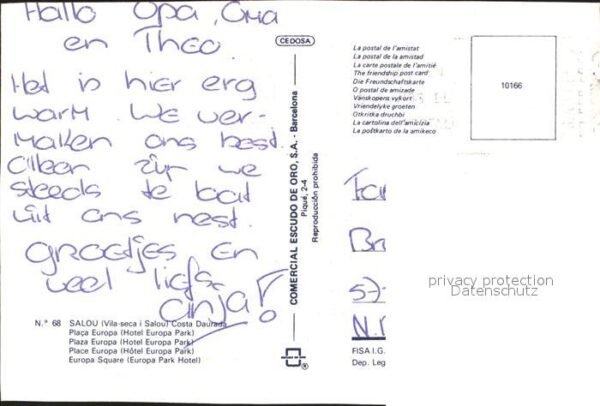 Hallo Opa, Oma
en Theo.
Het is hier erg
warm. We ver-
maken ons best.
Alleen zijn we
steeds te laat
uit ons nest.
groetjes en
veel liefs
Anja!
N.º 68 SALOU (Vila-seca i Salou) Costa Daurada
Plaça Europa (Hotel Europa Park)
Plaza Europa (Hotel Europa Park)
Place Europa (Hôtel Europa Park)
Europa Square (Europa Park Hotel)
CEDOSA
COMERCIAL ESCUDO DE ORO, S.A. - Barcelona
Piqué, 2-4
Reproducción prohibida
La postal de l'amistat
La postal de la amistad
La carte postale de l'amitié
The friendship post card
Die Freundschaftskarte
O postal de amizade
Vänskapens vykort
Vriendelyke groeten
Otkritka druchbi
La cartolina dell'amicizia
La poŝtkarto de la amikeco
10166
Fa
Br
57
N.
privacy protection
Datenschutz
FISA I.G.
Dep. Leg